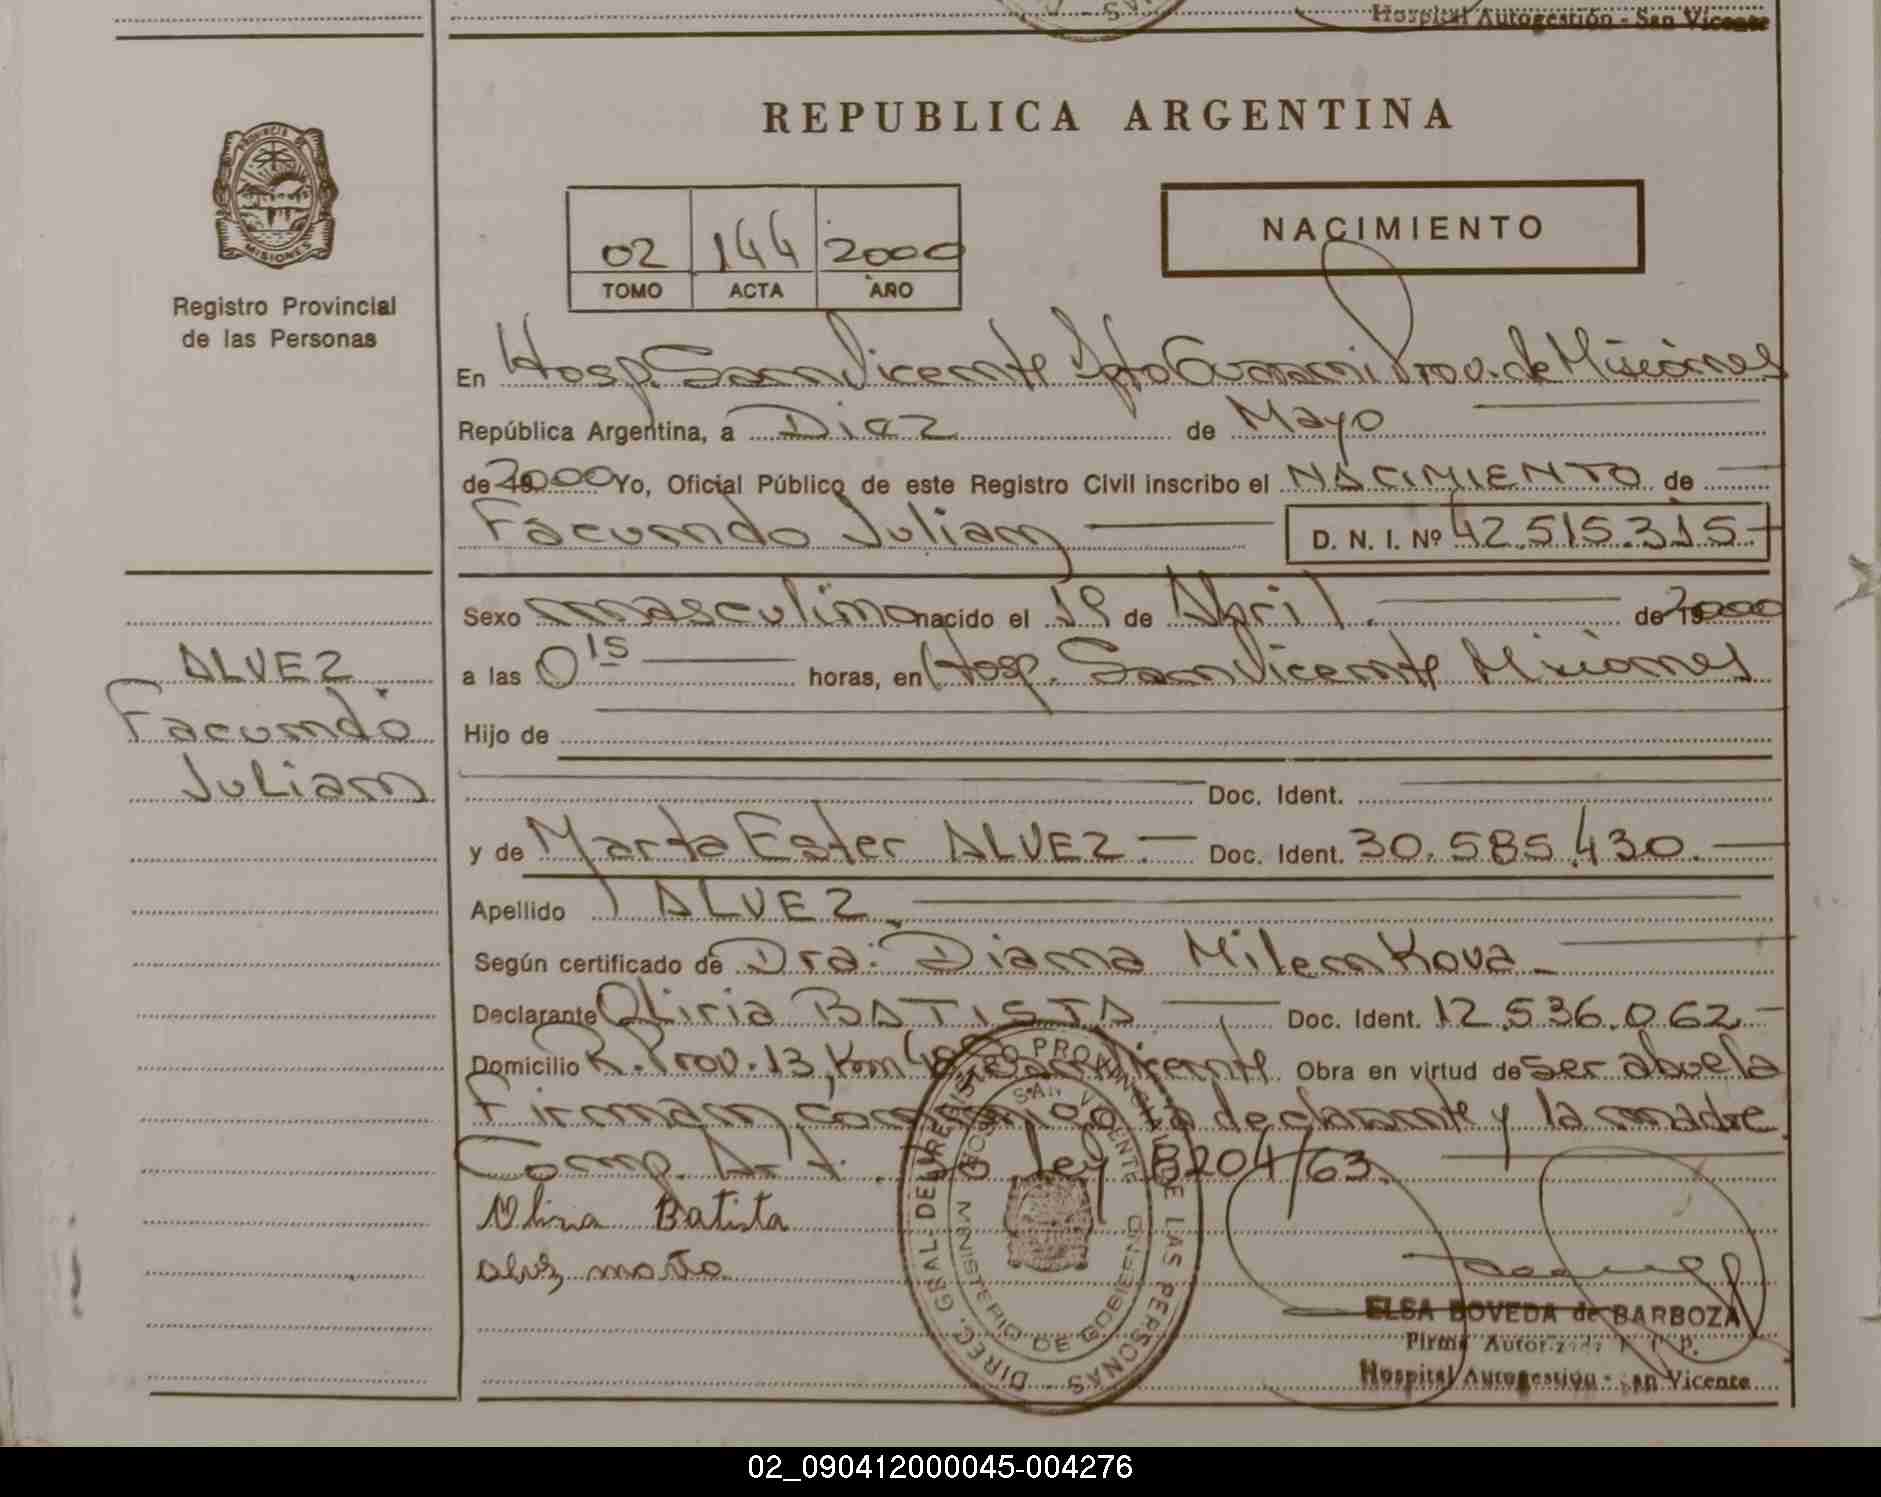 Hospital Autogestión - San Vicente
REPUBLICA ARGENTINA
PROVINCIA
MISIONES
Registro Provincial
de las Personas
02 144 2000
TOMO ACTA AÑO
NACIMIENTO
En Hosp. San Vicente Dpto Guarani Prov. de Misiones
República Argentina, a Diez de Mayo
de 2000 Yo, Oficial Público de este Registro Civil inscribo el NACIMIENTO de
Facundo Julian D. N. I. Nº 42.515.315.-
Sexo masculino nacido el 19 de Abril. de 19 2000
a las 0 15 horas, en Hosp. San Vicente Misiones
Hijo de
Doc. Ident.
y de Marta Ester ALVEZ.- Doc. Ident. 30.585.430.-
Apellido ALVEZ.
Según certificado de Dra: Diana Milenkova.
Declarante Oliria BATISTA Doc. Ident. 12.536.062.-
Domicilio R. Prov. 13, Km San Vicente Obra en virtud de ser abuela
Firman conmigo la declarante y la madre.
Comp. Art. Ley 8204/63.
ALVEZ
Facundo
Julian
Oliria Batista
alvez marta
DIREC. GRAL. DEL REGISTRO PROVINCIAL DE LAS PERSONAS
HOSP. SAN VICENTE
MINISTERIO DE GOBIERNO
ELSA BOVEDA de BARBOZA
Firma Autorizada R. P. P.
Hospital Autogestión - San Vicente
02_090412000045-004276